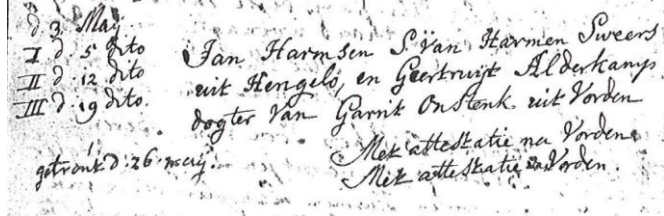 d 3 Maij
I d 5 dito
II d 12 dito
III d. 19 dito.
getrout d: 26: maij.
Jan Harmsen S. van Harmen Sweers
uit Hengelo, en Geertruijt Alderkamp
dogter van Garrit Onstenk uit Vorden
Met attestatie na Vorden
Met attestatie Vorden.